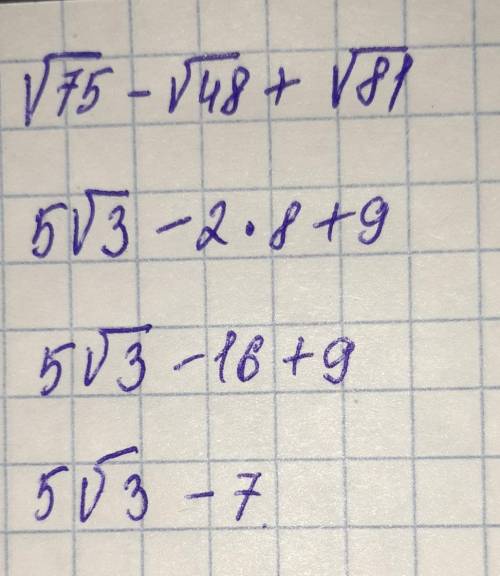 √75 - √48 + √81
5√3 - 2 · 8 + 9
5√3 - 16 + 9
5√3 - 7